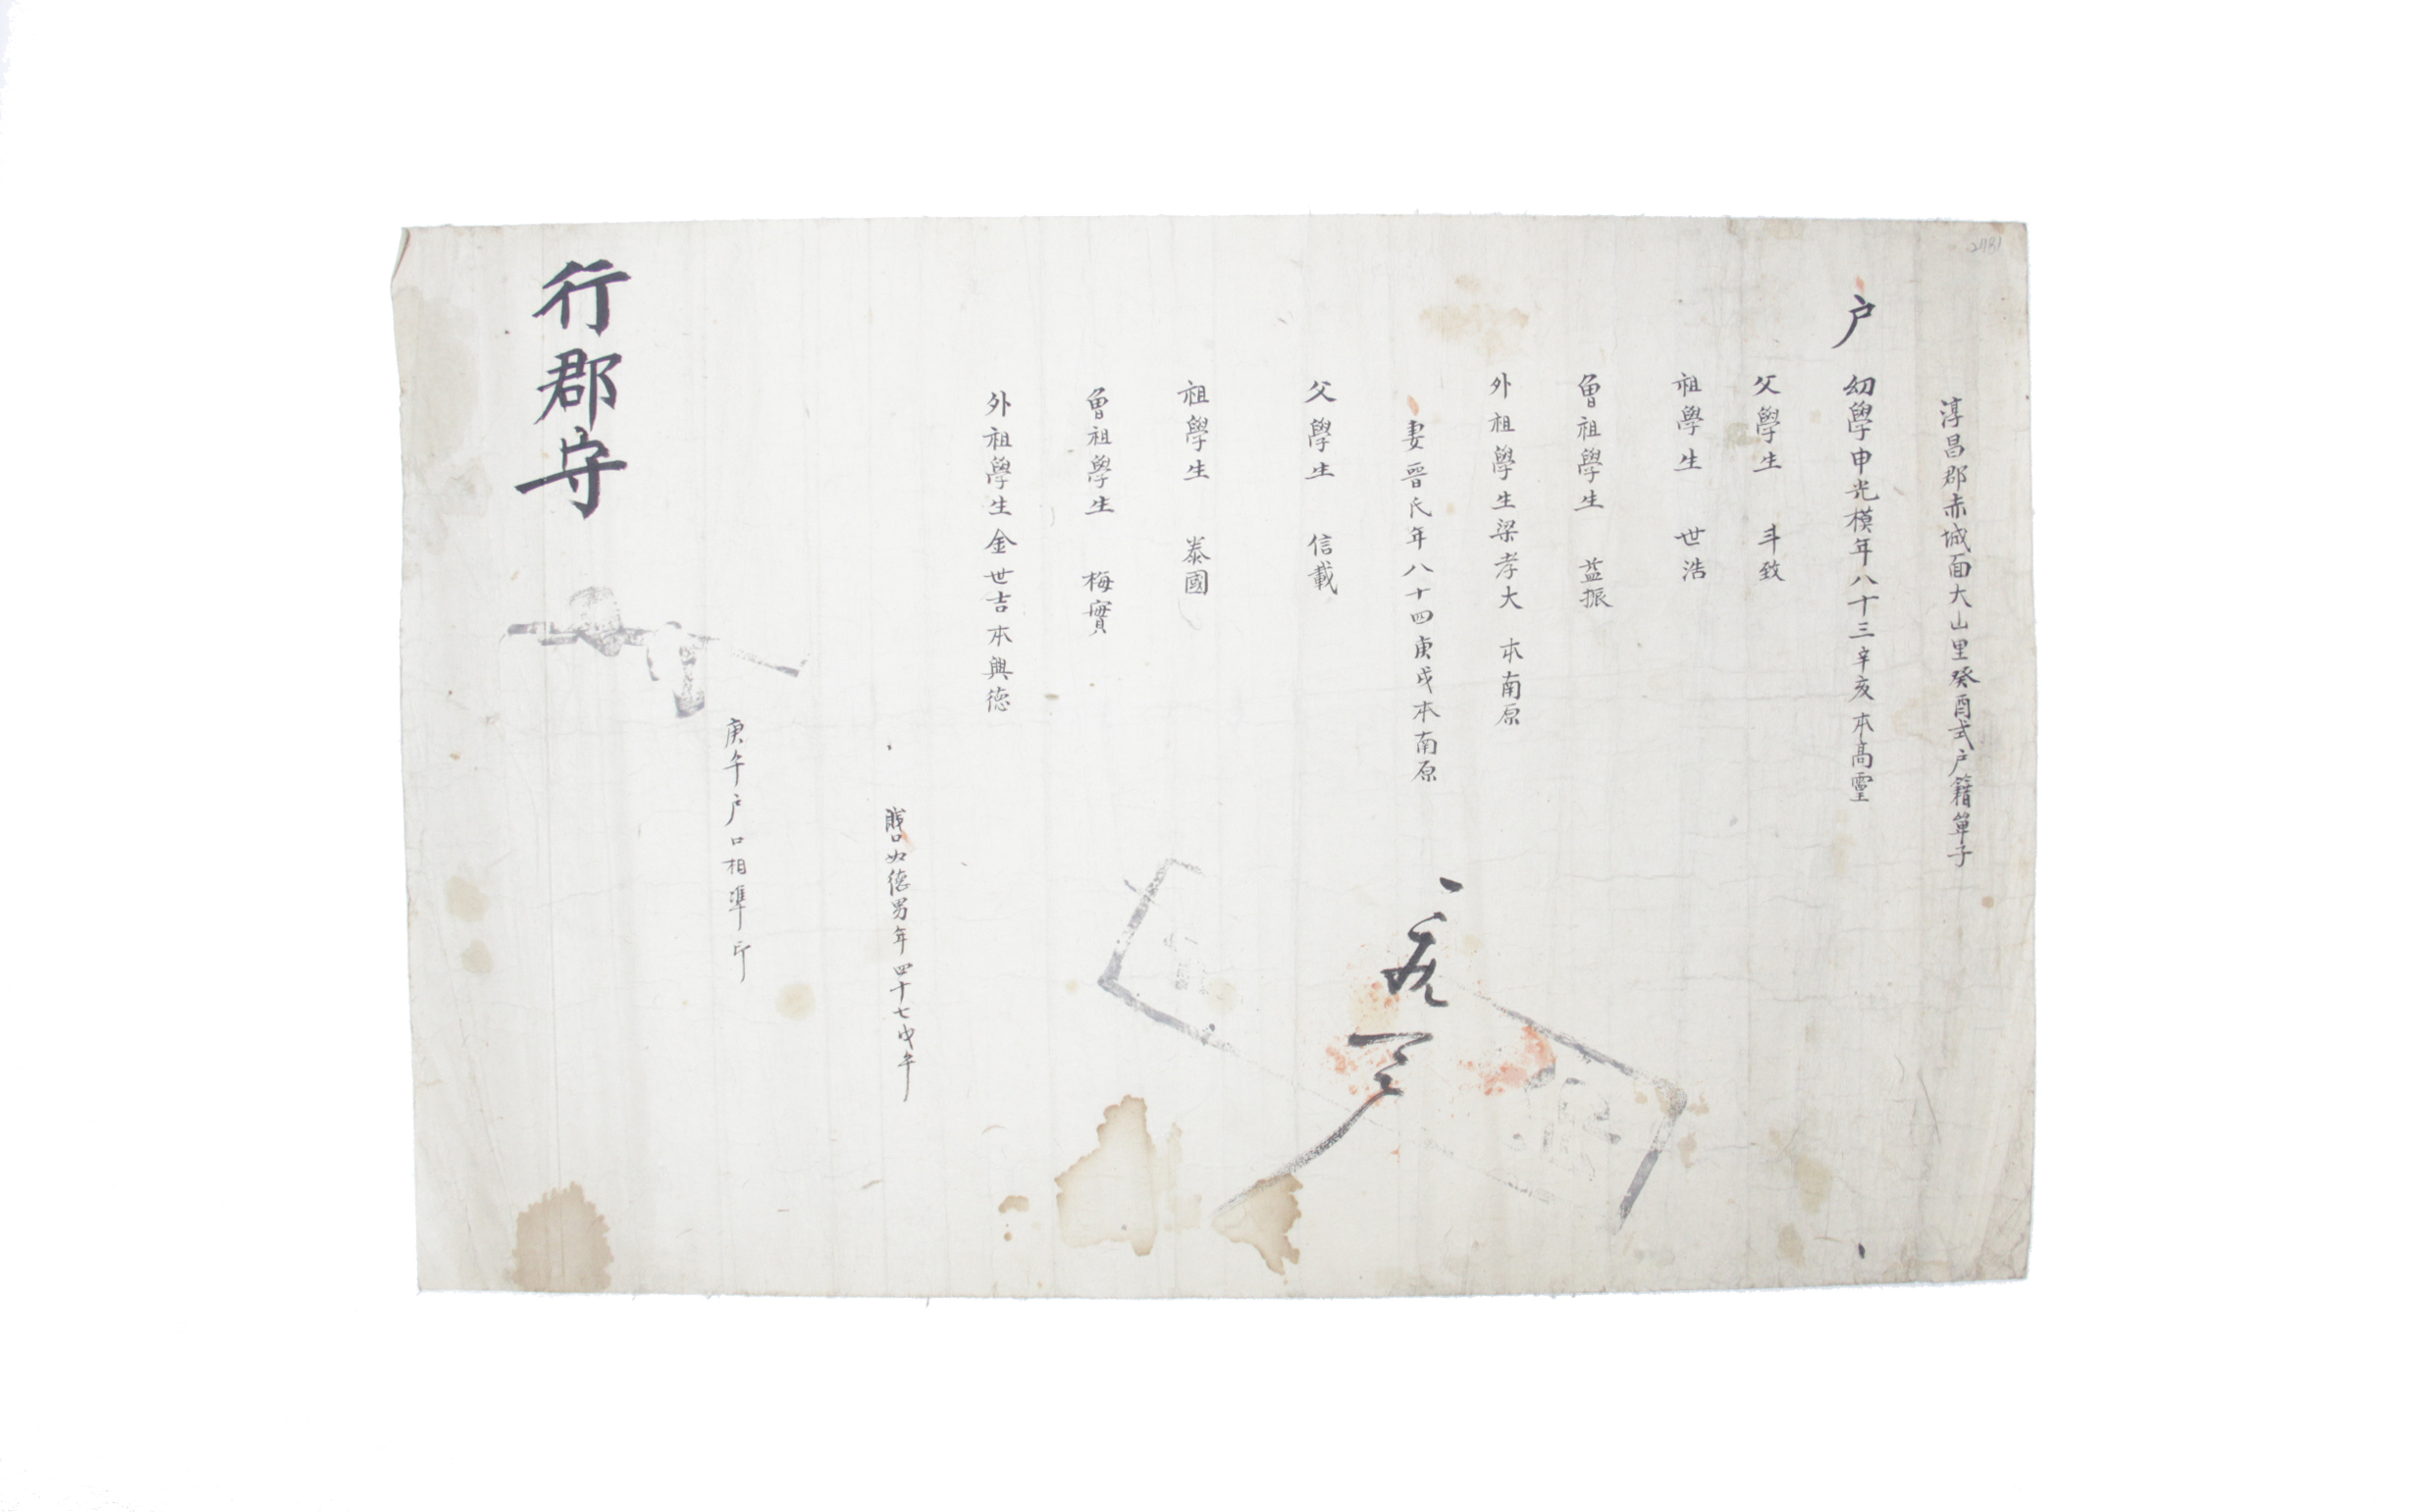 淳昌郡赤城面大山里癸酉式戶籍單子
戶 幼學申光模年八十三辛亥本高靈
父學生 斗致
祖學生 世浩
曾祖學生 益振
外祖學生梁孝大 本南原
妻晉氏年八十四庚戌本南原
父學生 信載
祖學生 泰國
曾祖學生 梅實
外祖學生金世吉本興德
賤口如德男年四十七戊午
庚午戶口相準印
行郡守